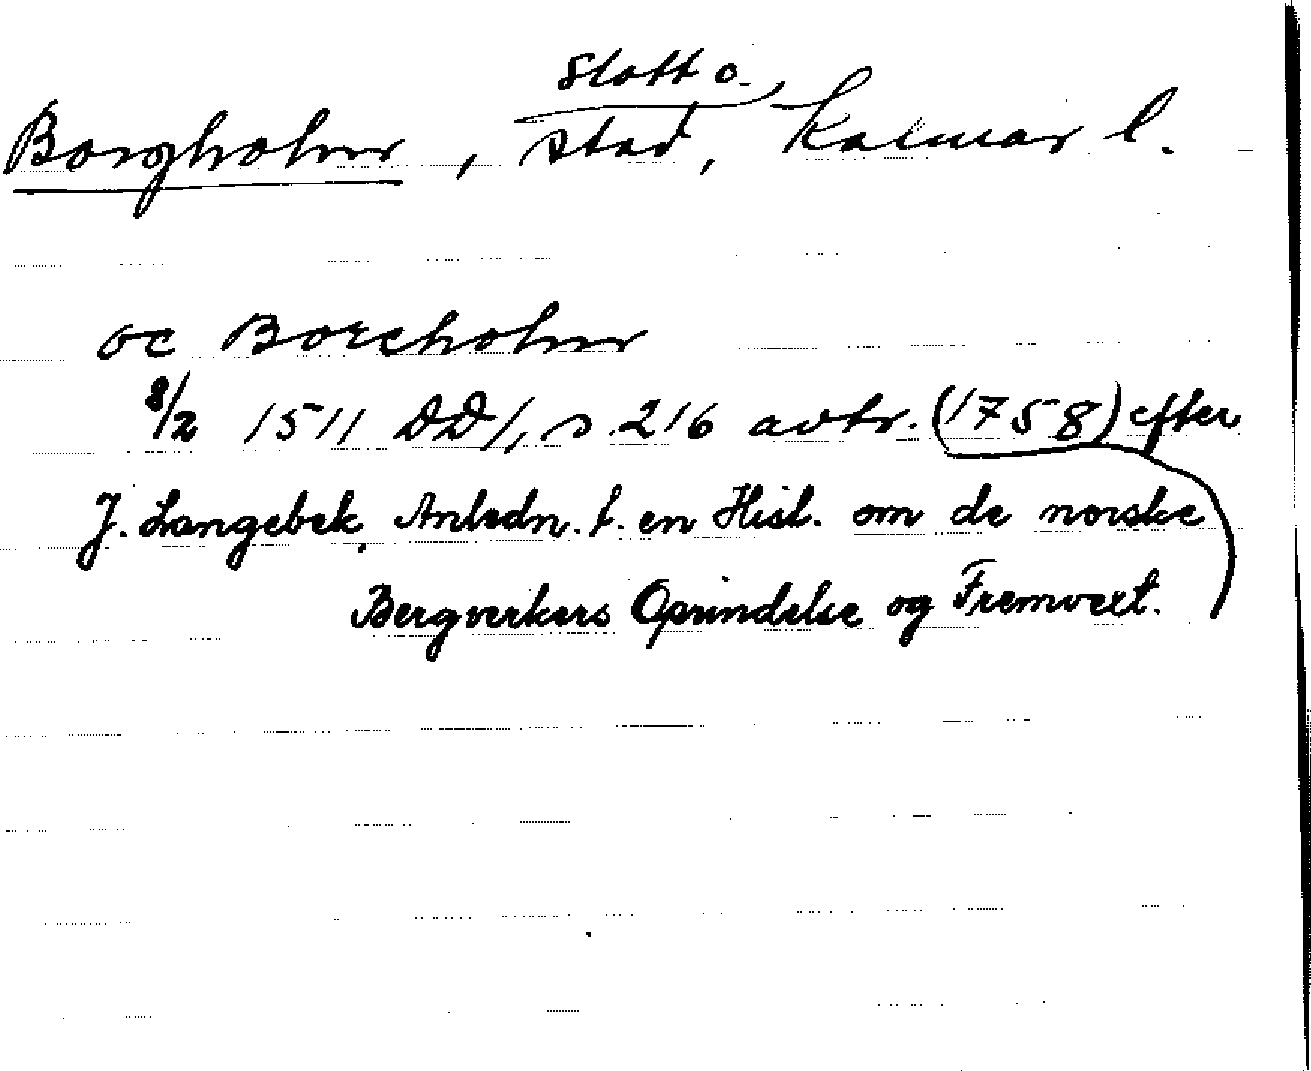 Borgholm, slott o. stad, Kalmar l.
oc Borcholm
8/2 1511 DD 1, s. 216 avtr. (1758) efter
J. Langebek, Anledn. t. en Hist. om de norske
Bergverkers Oprindelse og Fremvext.